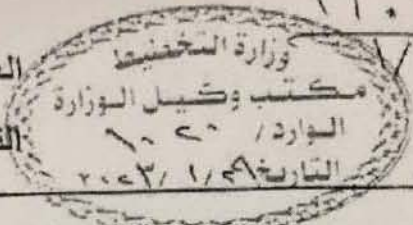 ١١٠
وزارة التخطيط
مكتب وكيل الوزارة
الوارد /
التاريخ ٢٩ / ١ / ٢٠٢٣